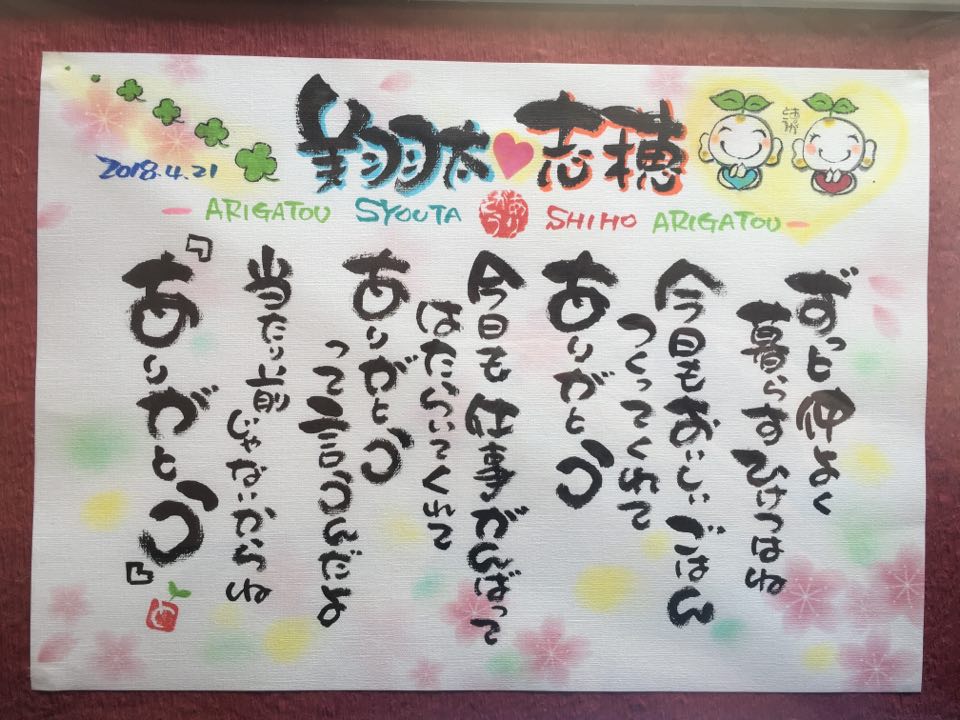 2018.4.21
翔太 志穂
ARIGATOU SYOUTA SHIHO ARIGATOU
ずっと仲よく
暮らすひけつはね
今日もおいしいごはん
つくってくれて
ありがとう
今日も仕事がんばって
はたらいてくれて
ありがとう
って言うんだよ
当たり前じゃないからね
『ありがとう』